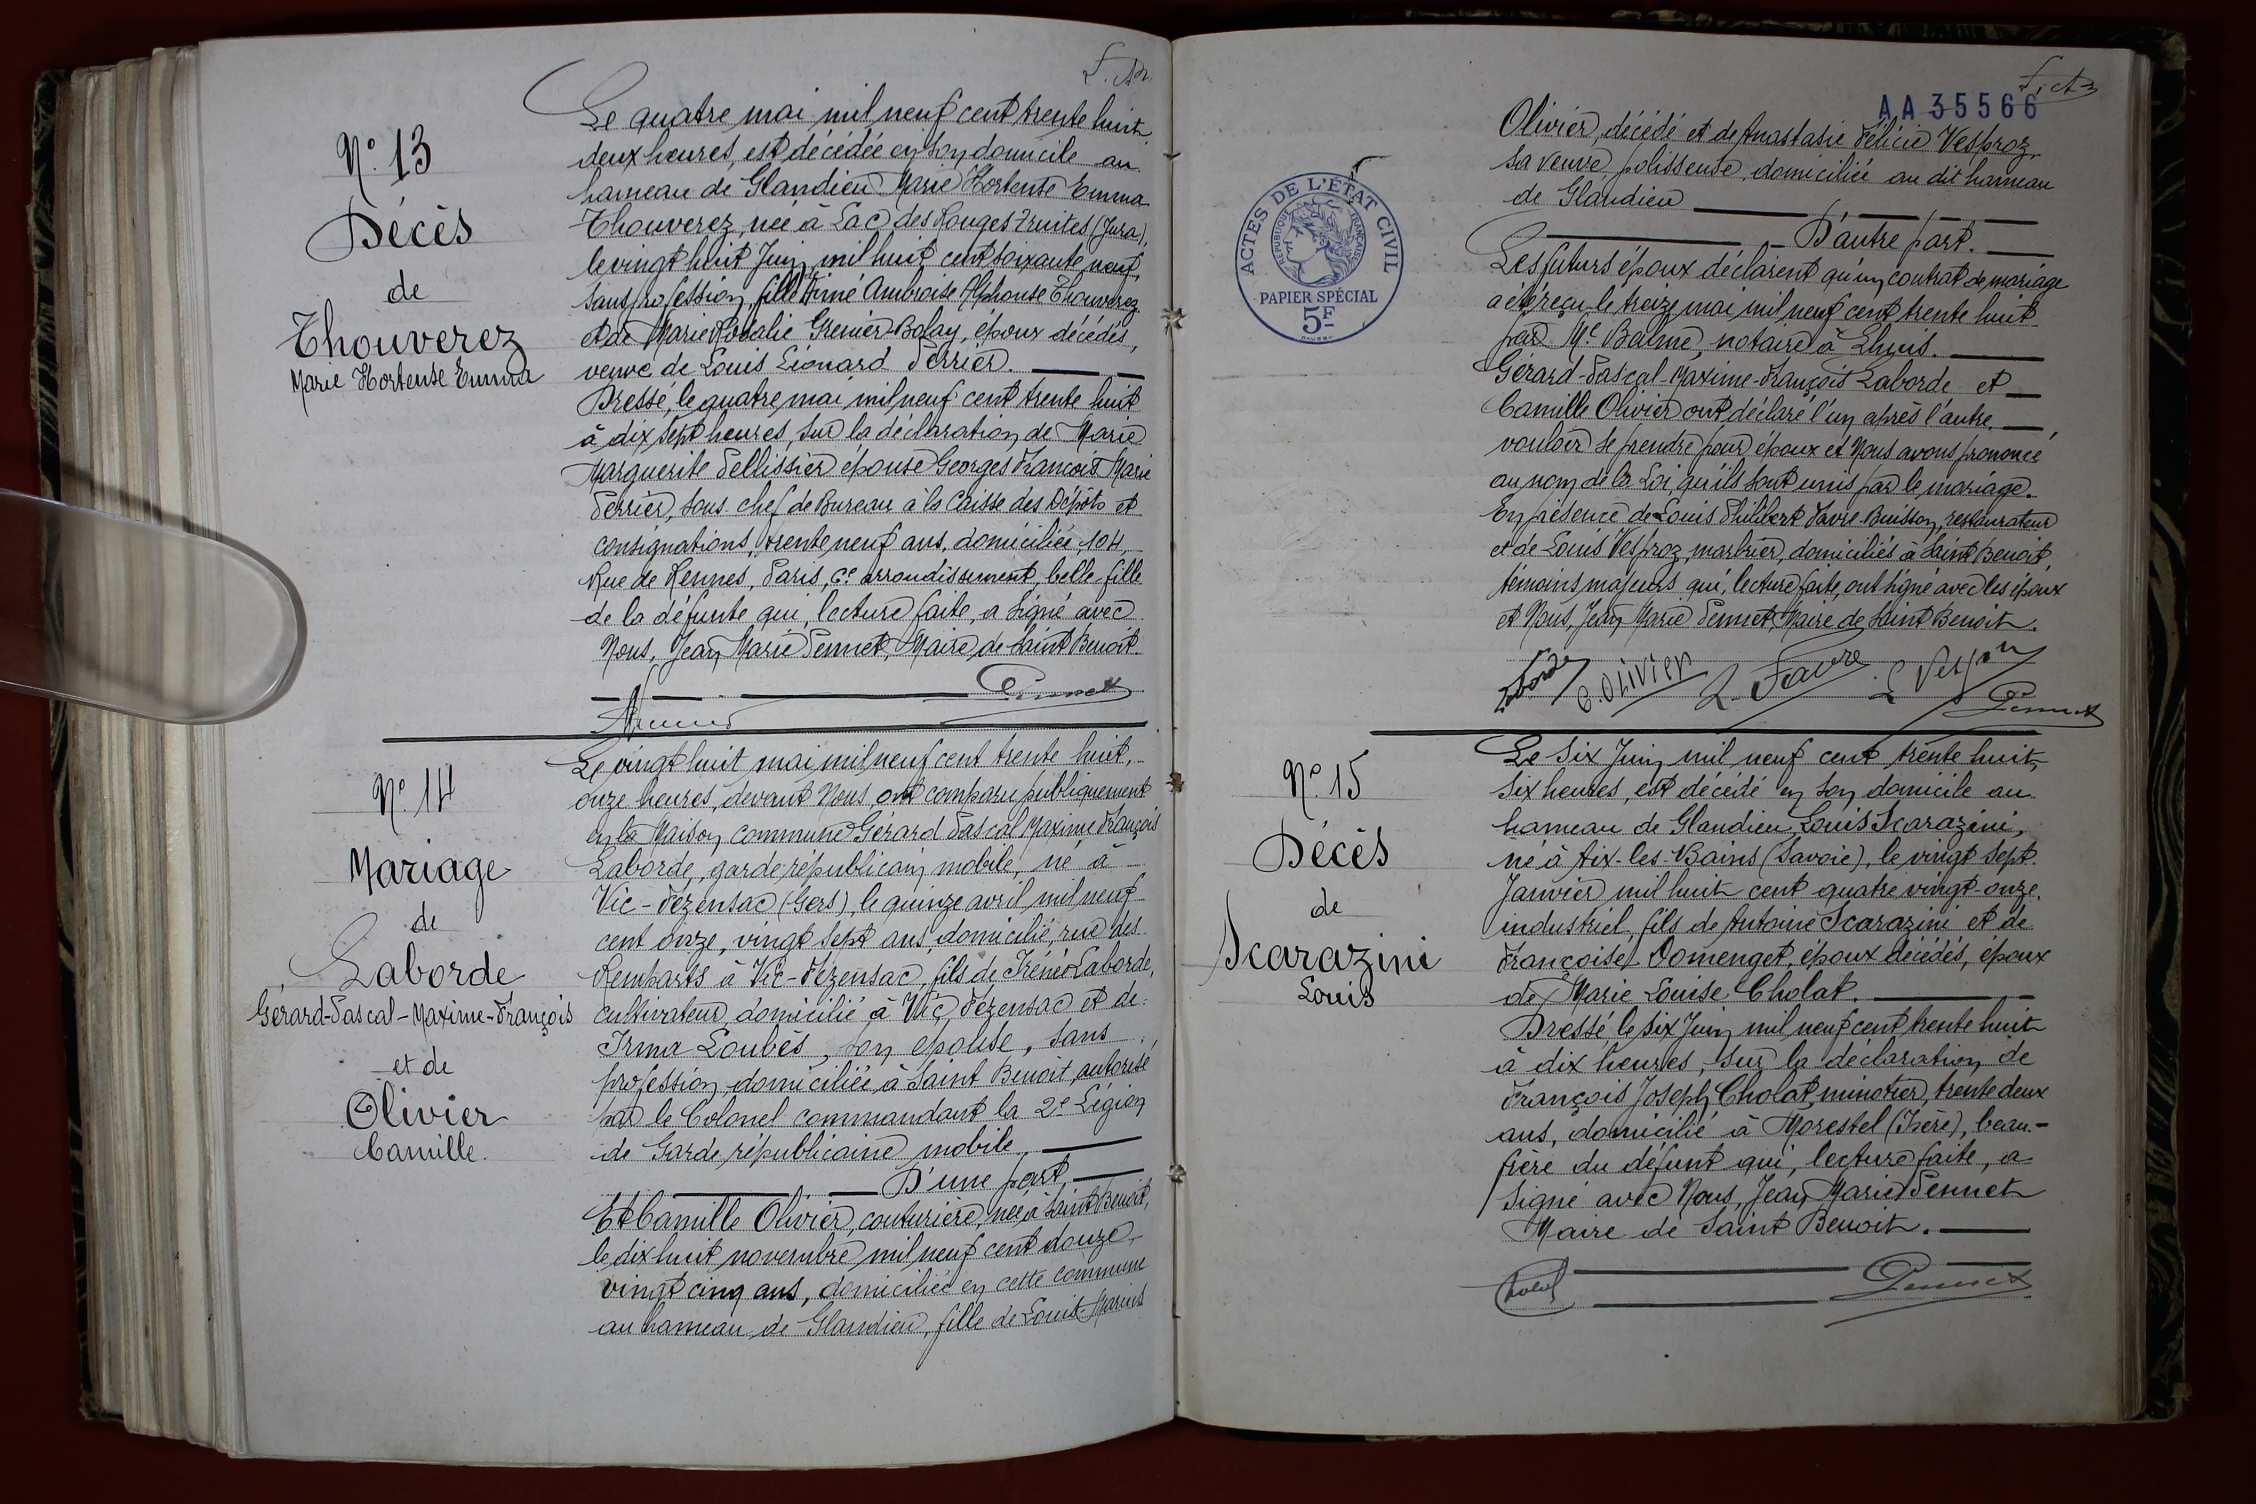 N° 13
Décès
de
Thouverez
Marie Hortense Emma
Le quatre mai mil neuf cent trente huit
deux heures, est décédée en son domicile au
hameau de Glandieu Marie Hortense Emma
Thouverez, née à Lac des Rouges Truites (Jura),
le vingt huit Juin mil huit cent soixante neuf,
sans profession, fille Aimé Ambroise Alphonse Thouverez
et de Marie Rosalie Grenier-Bolay, époux décédés,
veuve de Louis Léonard Perrier.
Dressé, le quatre mai mil neuf cent trente huit
à dix sept heures, sur la déclaration de Marie
Marguerite Pellissier épouse Georges François Marie
Perrier, sous-chef de Bureau à la Caisse des Dépôts et
consignations, trente neuf ans, domiciliée, 104,
Rue de Rennes, Paris, 6e arrondissement, belle-fille
de la défunte qui, lecture faite, a signé avec
Nous, Jean Marie Pennet, Maire de Saint Benoit.
Pennet
N° 14
Mariage
de
Laborde
Gérard-Pascal-Maxime-François
et de
Olivier
Camille.
Le vingt huit mai mil neuf cent trente huit,
onze heures, devant Nous ont comparu publiquement
en la Maison commune Gérard Pascal Maxime François
Laborde, garde républicain mobile, né à
Vic-Fezensac (Gers), le quinze avril mil neuf
cent onze, vingt sept ans, domicilié, rue des
Remparts à Vic-Fezensac, fils de Irénée Laborde,
cultivateur, domicilié à Vic Fezensac et de
Irma Loubès, son épouse, sans
profession, domiciliée à Saint Benoit, autorisé
par le Colonel commandant la 2e Légion
de Garde républicaine mobile
D'une part,
Et Camille Olivier, couturière, née à Saint Benoit,
le dix huit novembre mil neuf cent douze,
vingt cinq ans, domiciliée en cette commune
au hameau de Glandieu, fille de Louis-Marius
AA 35566
Olivier, décédé et de Anastasie Félicie Vesproz,
sa veuve, polisseuse, domiciliée au dit hameau
de Glandieu
D'autre part.
Les futurs époux déclarent qu'un contrat de mariage
a été reçu le treize mai mil neuf cent trente huit
par Me Balme, notaire à Lhuis.
Gérard-Pascal-Maxime-François Laborde et
Camille Olivier ont déclaré l'un après l'autre
vouloir se prendre pour époux et Nous avons prononcé
au nom de la Loi, qu'ils sont unis par le mariage.
En présence de Louis Philibert Favre-Buisson, restaurateur
et de Louis Vesproz, marbrier, domiciliés à Saint Benoit,
témoins majeurs qui, lecture faite, ont signé avec les époux
et Nous, Jean Marie Pennet, Maire de Saint Benoit.
Laborde C. Olivier L. Favre L. Vesproz
Pennet
ACTES DE L'ÉTAT CIVIL
RÉPUBLIQUE FRANÇAISE
PAPIER SPÉCIAL
5F
N° 15
Décès
de
Scarazini
Louis
Le six Juin mil neuf cent trente huit,
six heures, est décédé en son domicile au
hameau de Glandieu, Louis Scarazini,
né à Aix-les-Bains (Savoie), le vingt sept
Janvier mil huit cent quatre vingt-onze,
industriel, fils de Antoine Scarazini et de
Françoise Domenget, époux décédés, époux
de Marie Louise Cholat.
Dressé, le six Juin mil neuf cent trente huit
à dix heures, sur la déclaration de
François Joseph Cholat, minotier, trente deux
ans, domicilié à Morestel (Isère), beau-
frère du défunt qui, lecture faite, a
signé avec Nous, Jean Marie Pennet
Maire de Saint Benoit.
Cholat Pennet